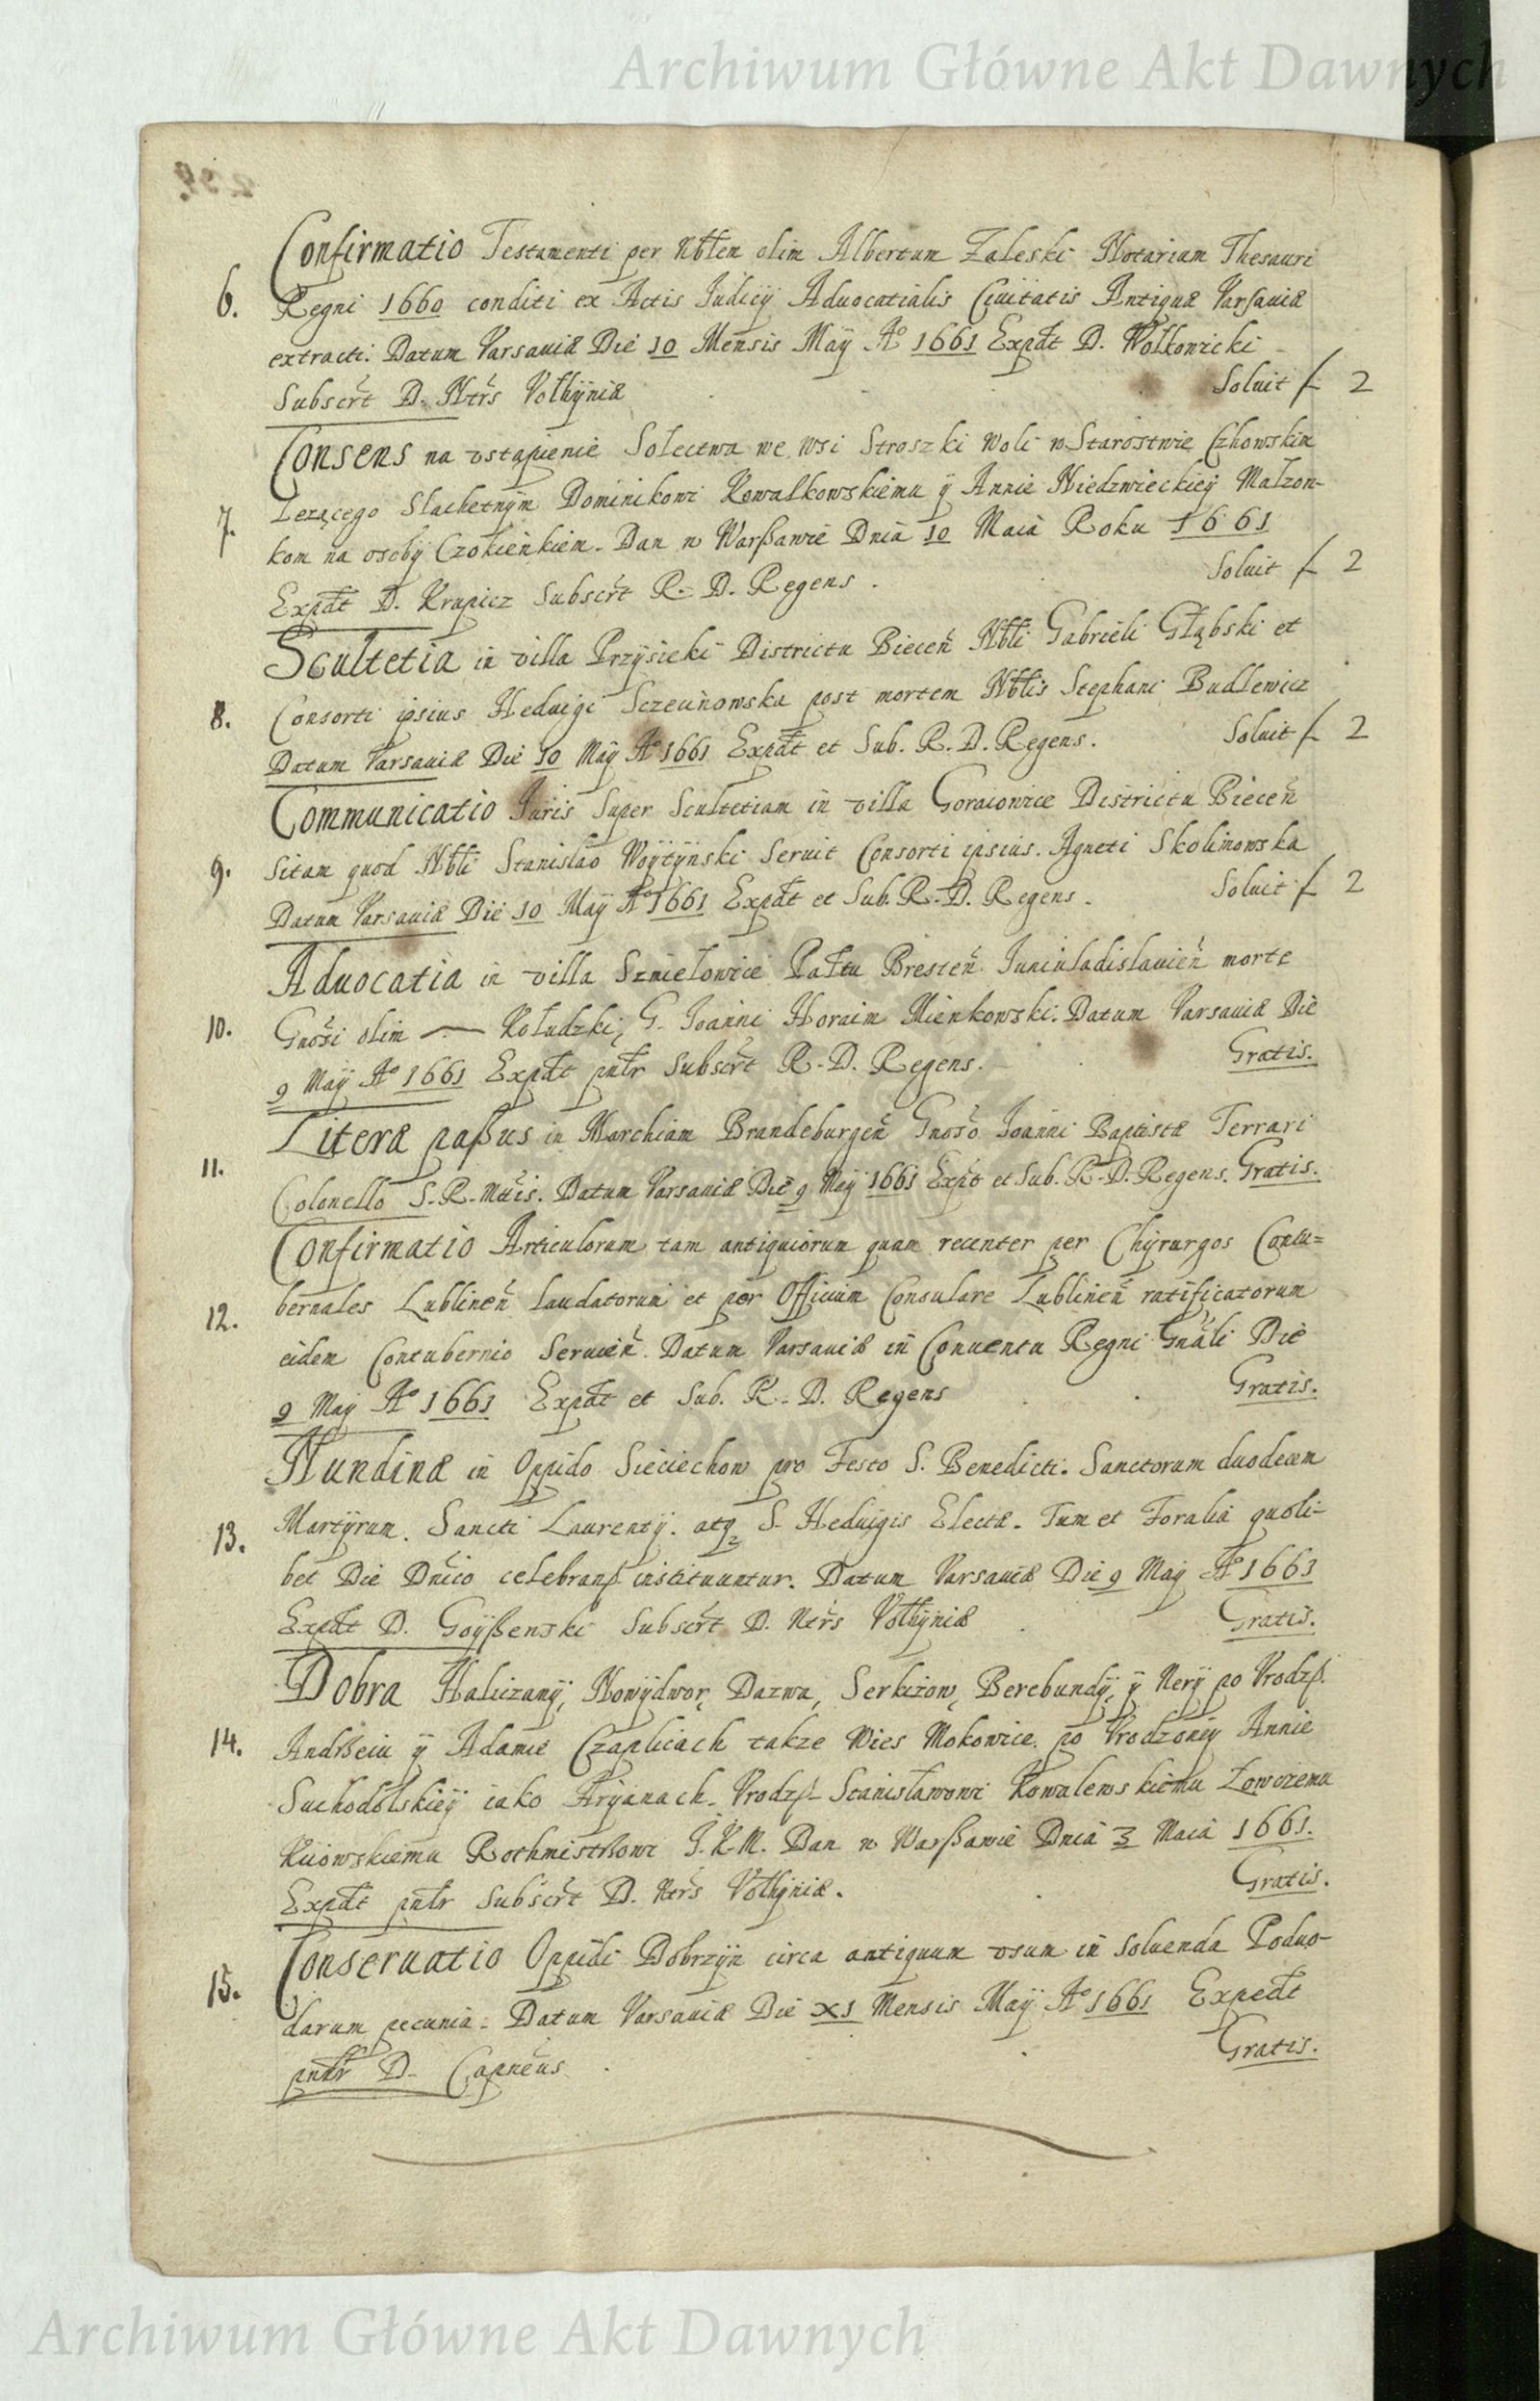 Archiwum Główne Akt Dawnych
Confirmatio Testamenti per Nblem olim Albertum Zaleski Notarium Thesauri
6. Regni 1660 conditi ex Actis Iudicij Aduocatialis Ciuitatis Antiquæ Varsauiæ
extracti. Datum Varsauiæ Die 10 Mensis Maÿ Aº 1661 Expdt D. Wolkowicki
Subscrt D. Ntrs Volhÿniæ Soluit f 2
Consens na vstąpienie Sołectwa we wsi Stroszki Woli w Starostwie Czhowskim
7. Lezącego Slachetnÿm Dominikowi Kowalkowskiemu ÿ Annie Niedzwieckieÿ Małzon-
kom na osobÿ Czokieńkiem. Dan w Warßawie Dnia 10 Maia Roku 1661
Expdt D. Krapicz Subscrt R. D. Regens. Soluit f 2
Scultetia in villa Przÿsieki Districtu Biecen Nbli Gabrieli Głąbski et
8. Consorti ipsius Heduigi Sczeunowska post mortem Nblis Stephani Budlewicz
Datum Varsauiæ Die 10 Maÿ Aº 1661 Expdt et Sub. R. D. Regens. Soluit f 2
Communicatio Iuris Super Scultetiam in villa Goraiowice Districtu Biecen
9. Sitam quod Nbli Stanislao Woÿtÿnski Seruit Consorti ipsius. Agneti Skolimowska
Datum Varsauiæ Die 10 Maÿ Aº 1661 Expdt et Sub. R. D. Regens. Soluit f 2
Aduocatia in villa Szmiełowice Pałtu Bresten Iuniuladislauien morte
10. Gnosi olim — Kołudzki, G. Ioanni Horaim Mienkowski. Datum Varsauiæ Die
9 Maÿ Aº 1661 Expdt pntr Subscrt R. D. Regens. Gratis.
Literæ paßus in Marchiam Brandeburgen Gnoso Ioanni Baptistæ Ferrari
11. Colonello S. R. Mttis. Datum Varsauiæ Die 9 Maÿ 1661 Expt et Sub. R. D. Regens. Gratis.
Confirmatio Articulorum tam antiquiorum quam recenter per Chÿrurgos Contu=
12. bernales Lublinen laudatorum et per Officium Consulare Lublinen ratificatorum
eidem Contubernio Seruien. Datum Varsauiæ in Conuentu Regni Gnali Die
9 Maÿ Aº 1661 Expdt et Sub. R. D. Regens Gratis.
Nundinæ in Oppido Sieciechow pro Festo S. Benedicti. Sanctorum duodecim
13. Martÿrum. Sancti Laurentÿ. atq S. Heduigis Electæ. Tum et Foralia quoli-
bet Die Dnico celebran instituuntur. Datum Varsauiæ Die 9 Maÿ Aº 1661
Expdt D. Goÿßenski Subscrt D. Ntrs Volhÿniæ Gratis.
Dobra Haliczanÿ, Nowÿdwor, Dazwa, Serkizow, Berebundÿ, ÿ Nerÿ po Vrodz.
14. Andrßeiu ÿ Adamie Czaplicach takze Wies Mokowice. po Vrodzoneÿ Annie
Suchodolskieÿ iako Arÿanach. Vrodz. Stanisławowi Kowalewskiemu Łowczemu
Kiiowskiemu Rothmistrßowi J. K. M. Dan w Warßawie Dnia 3 Maia 1661.
Expdt pntr Subscrt D. Ntrs Volhÿniæ. Gratis.
Conseruatio Oppidi Dobrzÿn circa antiquum vsum in soluenda Poduo-
15. darum pecunia. Datum Varsauiæ Die XI Mensis Maÿ Aº 1661 Expedt
pntr D. Capneus Gratis.
Archiwum Główne Akt Dawnych